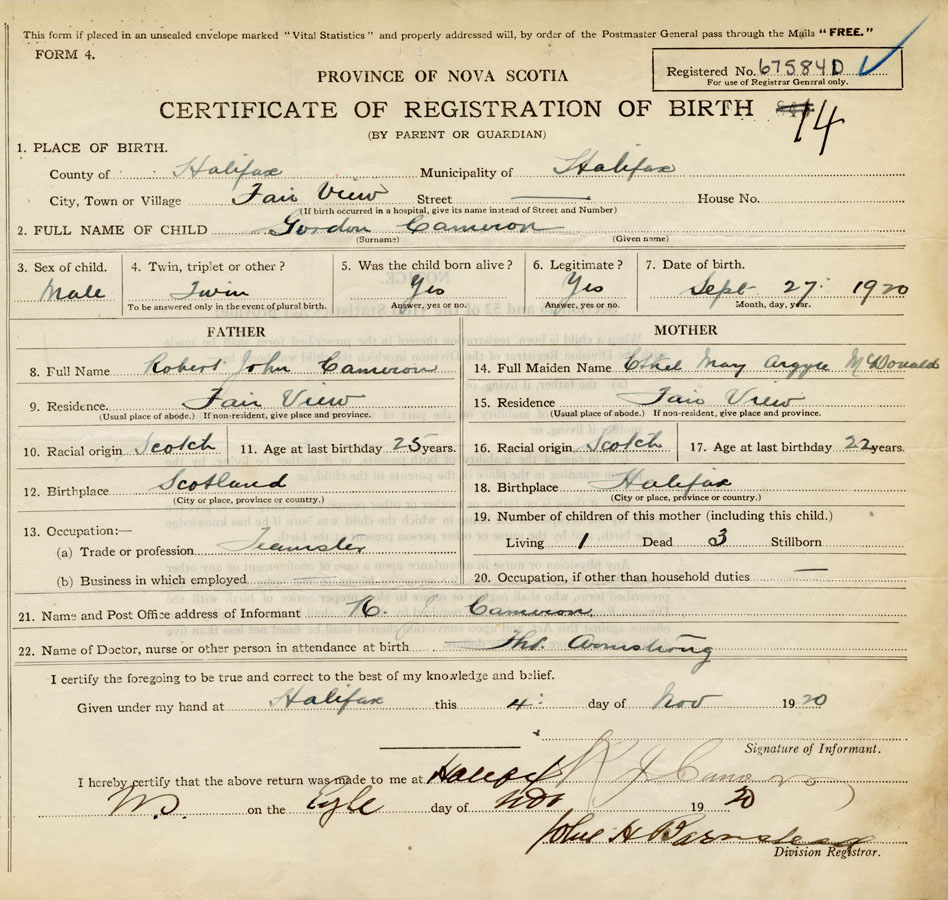 This form if placed in an unsealed envelope marked "Vital Statistics" and properly addressed will, by order of the Postmaster General pass through the Mails "FREE."
FORM 4.
Registered No. 67584D
For use of Registrar General only.
PROVINCE OF NOVA SCOTIA
CERTIFICATE OF REGISTRATION OF BIRTH 14
(BY PARENT OR GUARDIAN)
1. PLACE OF BIRTH.
County of Halifax Municipality of Halifax
City, Town or Village Fair View Street — House No.
(If birth occurred in a hospital, give its name instead of Street and Number)
2. FULL NAME OF CHILD Gordon Cameron
(Surname) (Given name)
3. Sex of child. 4. Twin, triplet or other? 5. Was the child born alive? 6. Legitimate? 7. Date of birth.
Male Twin Yes Yes Sept 27 1920
To be answered only in the event of plural birth. Answer, yes or no. Answer, yes or no. Month, day, year.
FATHER
8. Full Name Robert John Cameron
9. Residence Fair View
(Usual place of abode.) If non-resident, give place and province.
10. Racial origin Scotch 11. Age at last birthday 25 years.
12. Birthplace Scotland
(City or place, province or country.)
13. Occupation:—
(a) Trade or profession Teamster
(b) Business in which employed —
MOTHER
14. Full Maiden Name Ethel Mary Argyle McDonald
15. Residence Fair View
(Usual place of abode.) If non-resident, give place and province.
16. Racial origin Scotch 17. Age at last birthday 22 years.
18. Birthplace Halifax
(City or place, province or country.)
19. Number of children of this mother (including this child.)
Living 1 Dead 3 Stillborn
20. Occupation, if other than household duties —
21. Name and Post Office address of Informant R. J Cameron
22. Name of Doctor, nurse or other person in attendance at birth Armstrong
I certify the foregoing to be true and correct to the best of my knowledge and belief.
Given under my hand at Halifax this 4 day of Nov 1920
Signature of Informant.
I hereby certify that the above return was made to me at Halifax R J Cameron
N.S. on the day of Nov 1920
John H Barnstead
Division Registrar.